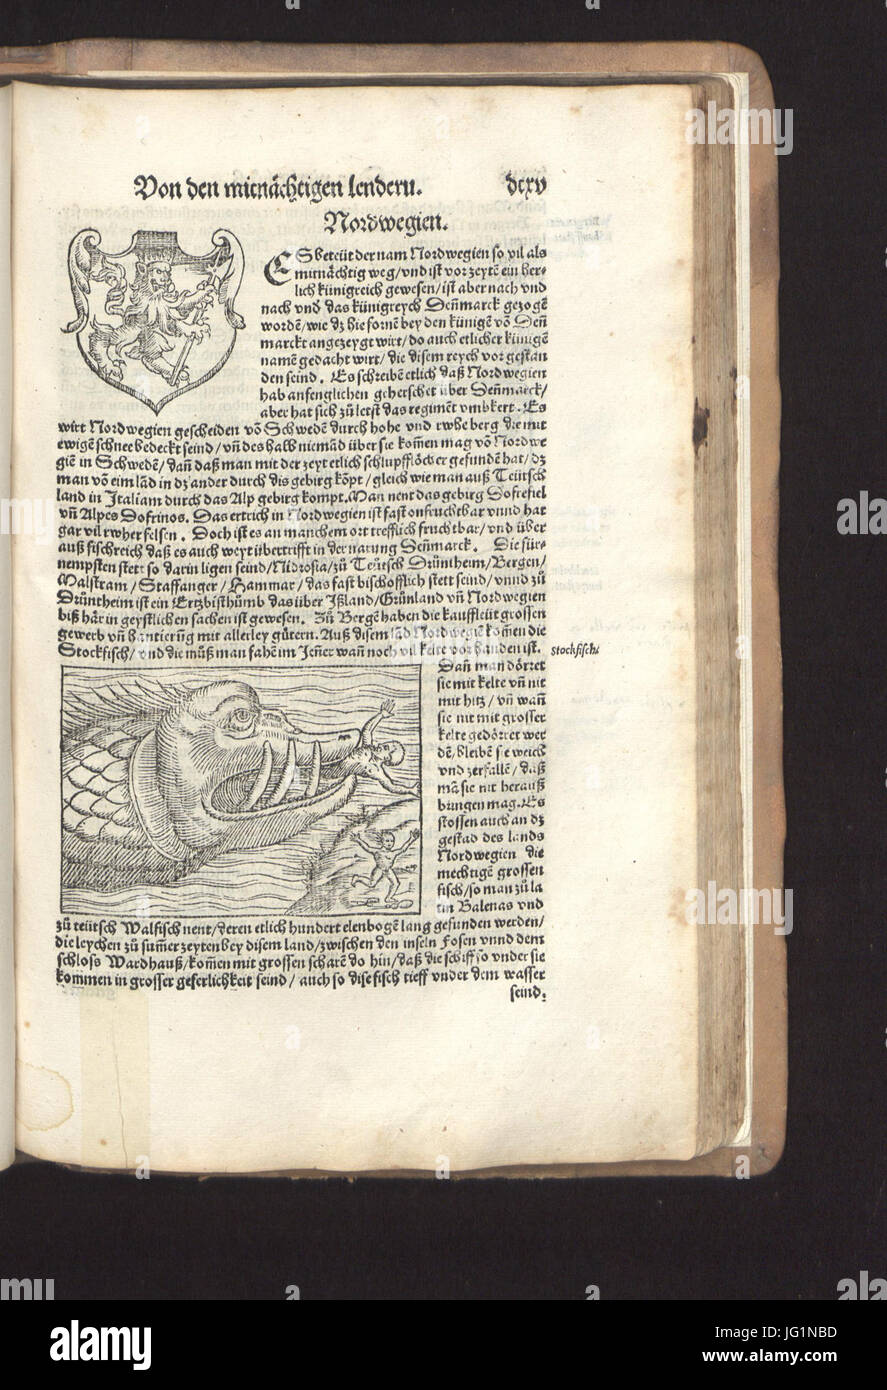 Von den mitnächtigen lendern. dcxv
Nordwegien.
ESbeteüt der nam Nordwegien so vil als
mitnächtig weg/vnd ist vor zeytē ein her-
lich künigreich gewesen/ist aber nach vnd
nach vnd das künigreych Deñmarck gezogē
wordē/wie dz hie fornē bey den künigē vō Deñ
marckt angezeygt wirt/do auch etlicher künigen
namē gedacht wirt/die disem reych vor gestan
den seind. Es schreibē etlich daß Nordwegien
hab anfenglichen geherschet über Deñmarck/
aber hat sich zů letst das regimēt vmbkert. Es
wirt Nordwegien gescheiden vō Schwedē durch hohe vnd rwhe berg die mit
ewigē schnee bedeckt seind/vñ deshalb niemād über sie kom̄en mag vō Nordwe
giē in Schwedē/dañ daß man mit der zeyt etlich schlupfflöcher gefunden hat/dz
man vō eim lād in dz ander durch dis gebirg kōpt/gleich wie man auß Teütsch
land in Italiam durch das Alp gebirg kompt. Man nent das gebirg Dofrefiel
vñ Alpes Dofrinos. Das ertrich in Nordwegien ist fast onfruchtbar vnnd hat
gar vil rwher felsen. Doch ist es an manchem ort trefflich fruchtbar/vnd über
auß fischreich daß es auch weyt übertrifft in der narung Deñmarck. Die für-
nempsten stett so darin ligen seind/Nidrosia/zů Teütsch Drüntheim/Bergen/
Malstram/Staffanger/Hammar/das fast bischofflich stett seind/vnnd zů
Drüntheim ist ein Ertzbisthůmb das über Ißland/Grünland vñ Nordwegien
biß här in geystlichen sachen ist gewesen. Zů Bergē haben die kauffleüt grossen
gewerb vñ hantierūg mit allerley gütern. Auß disem lād Nordwegiē kom̄en die
Stockfisch/vnd die můß man fahē im Jeñer wañ noch vil kelte vorhanden ist. Stockfisch
Dañ man dörret
sie mit kelte vñ nit
mit hitz/vñ wañ
sie nit mit grosser
kelte gedörret wer
dē/bleibē sie weich
vnd zerfallē/daß
mā sie nit herauß
bringen mag. Es
stossen auch an dz
gestad des lands
Nordwegien die
mechtigē grossen
fisch/so man zů la
tin Balenas vnd
zů teütsch Walfisch nent/deren etlich hundert elenbogē lang gefunden werden/
die leychen zů sum̄er zeyten bey disem land/zwischen den inseln Fosen vnnd dem
schloss Wardhauß/kom̄en mit grossen scharē do hin/daß die schiff so vnder sie
kommen in grosser geferlichkeit seind/auch so dise fisch tieff vnder dem wasser
seind.
alamy
JG1NBD
www.alamy.com